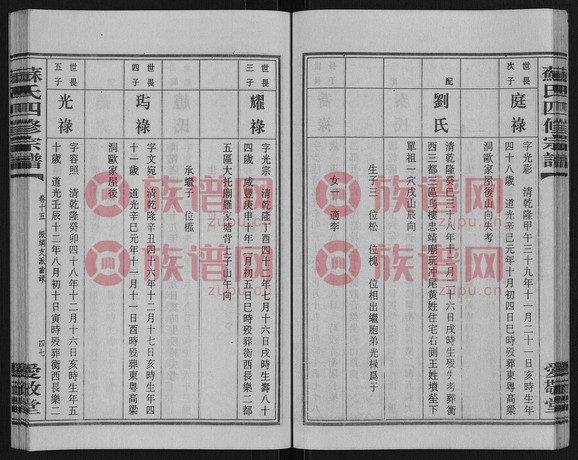 蘇氏四修宗譜
愛敬堂
世畏
次子
庭祿
字光彩 清乾隆甲午三十九年十一月二十一日亥時生年
四十八歲 道光辛巳元年十月初四日巳時歿葬東粵高梁
洞歐家屋後山向失考
配
劉氏
清乾隆癸
西三都三區烏樓忠靖廟玩冲尾黃姓住宅右側王姓墳塋下
單祖一穴戌山辰向
生子三 位松 位槐 位相出繼胞弟光祿爲子
女一 適李
世畏
三子
耀祿
字光宗 清乾隆丁酉四十二年七月十六日戌時生壽八十
四歲 咸豐庚申十年二月初五日巳時歿葬衡西長樂二都
五區大托廟羅家塘背上子山午向
承繼子 位槿
世畏
四子
玙祿
字文宛 清乾隆辛丑四十六年十二月十七日亥時生年四
十一歲 道光辛巳元年十一月十一日酉時歿葬東粵高梁
洞歐家屋後
世畏
五子
光祿
字容照 清乾隆癸卯四十八年十二月十六日亥時生年五
十歲 道光壬辰十二年八月初十日寅時歿葬衡西長樂二
蘇氏四修宗譜
卷十五
四七
愛敬堂
族谱网
zupu.cn
族谱网
zupu.cn
族谱网
zupu.cn
族谱网
zupu.cn